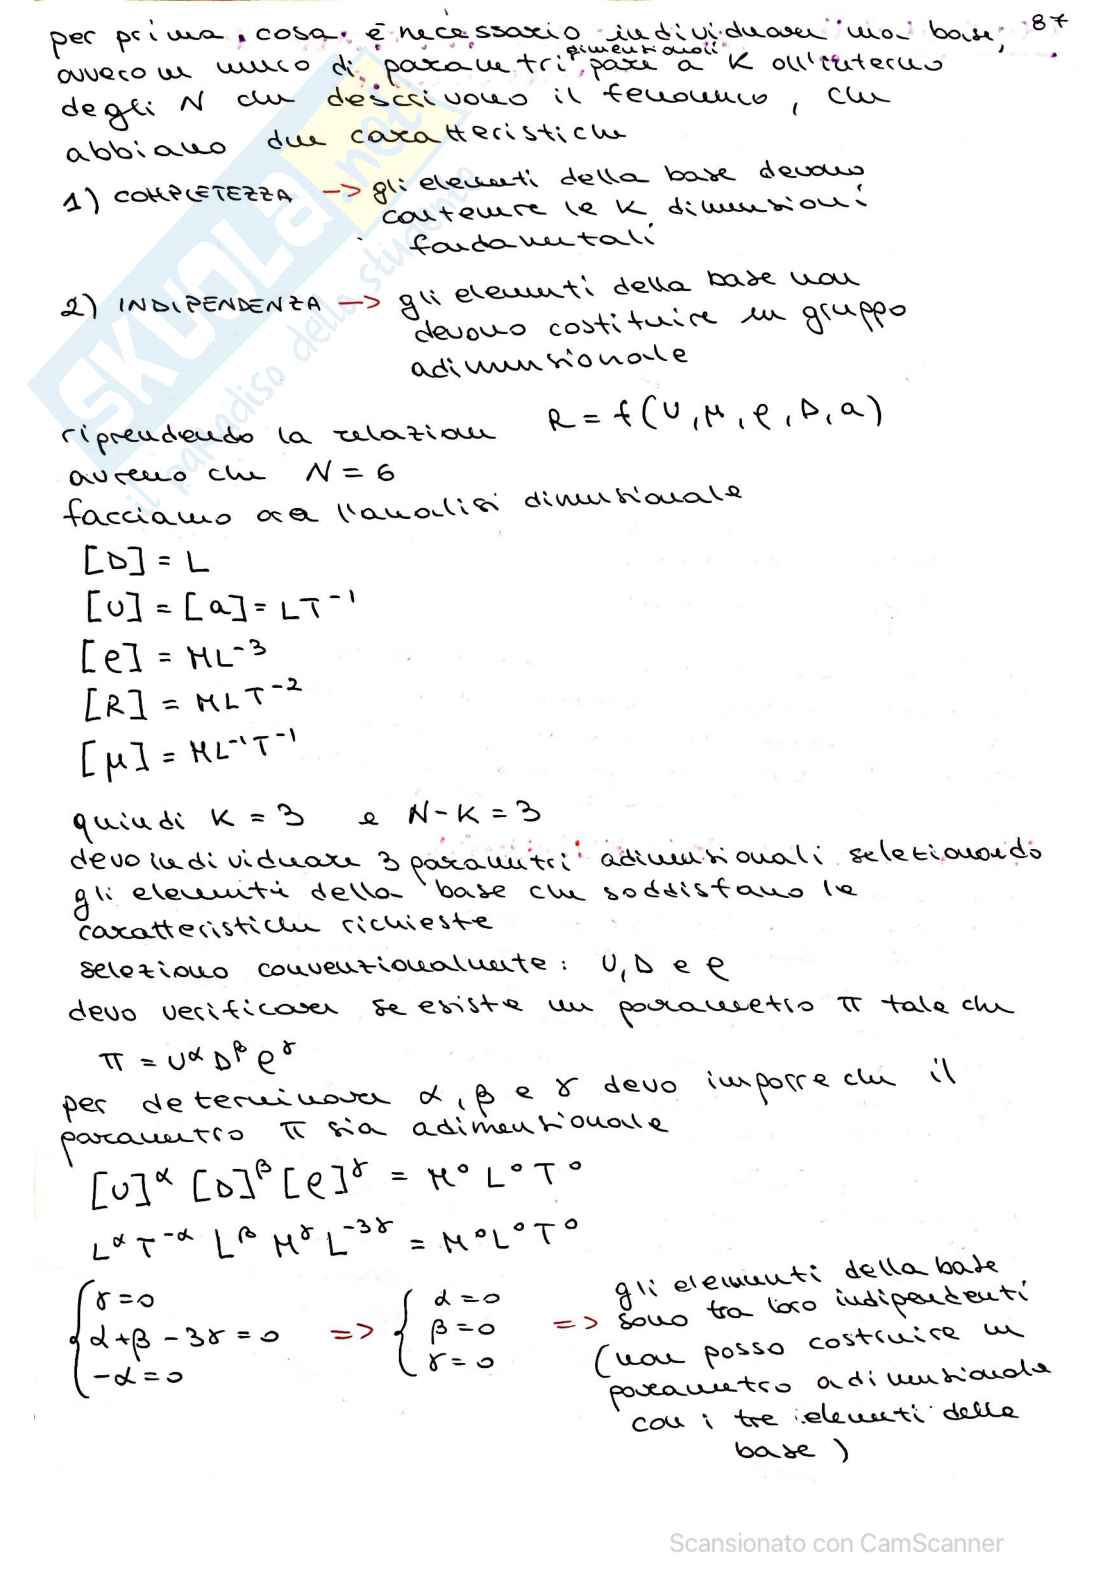 87
per prima cosa è necessario individuare una base,
ovvero un numero di parametri dimensionali pari a K all'interno
degli N che descrivono il fenomeno, che
abbiano due caratteristiche
1) COMPLETEZZA -> gli elementi della base devono
contenere le K dimensioni
fondamentali
2) INDIPENDENZA -> gli elementi della base non
devono costituire un gruppo
adimensionale
riprendendo la relazione R = f(U, μ, ρ, D, a)
avremo che N = 6
facciamo ora l'analisi dimensionale
[D] = L
[U] = [a] = LT⁻¹
[ρ] = ML⁻³
[R] = MLT⁻²
[μ] = ML⁻¹T⁻¹
quindi K = 3 e N-K = 3
devo individuare 3 parametri adimensionali selezionando
gli elementi della base che soddisfano le
caratteristiche richieste
seleziono convenzionalmente: U, D e ρ
devo verificare se esiste un parametro π tale che
π = U^α D^β ρ^γ
per determinare α, β e γ devo imporre che il
parametro π sia adimensionale
[U]^α [D]^β [ρ]^γ = M⁰ L⁰ T⁰
L^α T^-α L^β M^γ L^-3γ = M⁰L⁰T⁰
{ γ=0
α+β-3γ=0
-α=0
=> { α=0
β=0
γ=0
=> gli elementi della base
sono tra loro indipendenti
(non posso costruire un
parametro adimensionale
con i tre elementi della
base)
SKUOLA.net
il paradiso dello studente
Scansionato con CamScanner